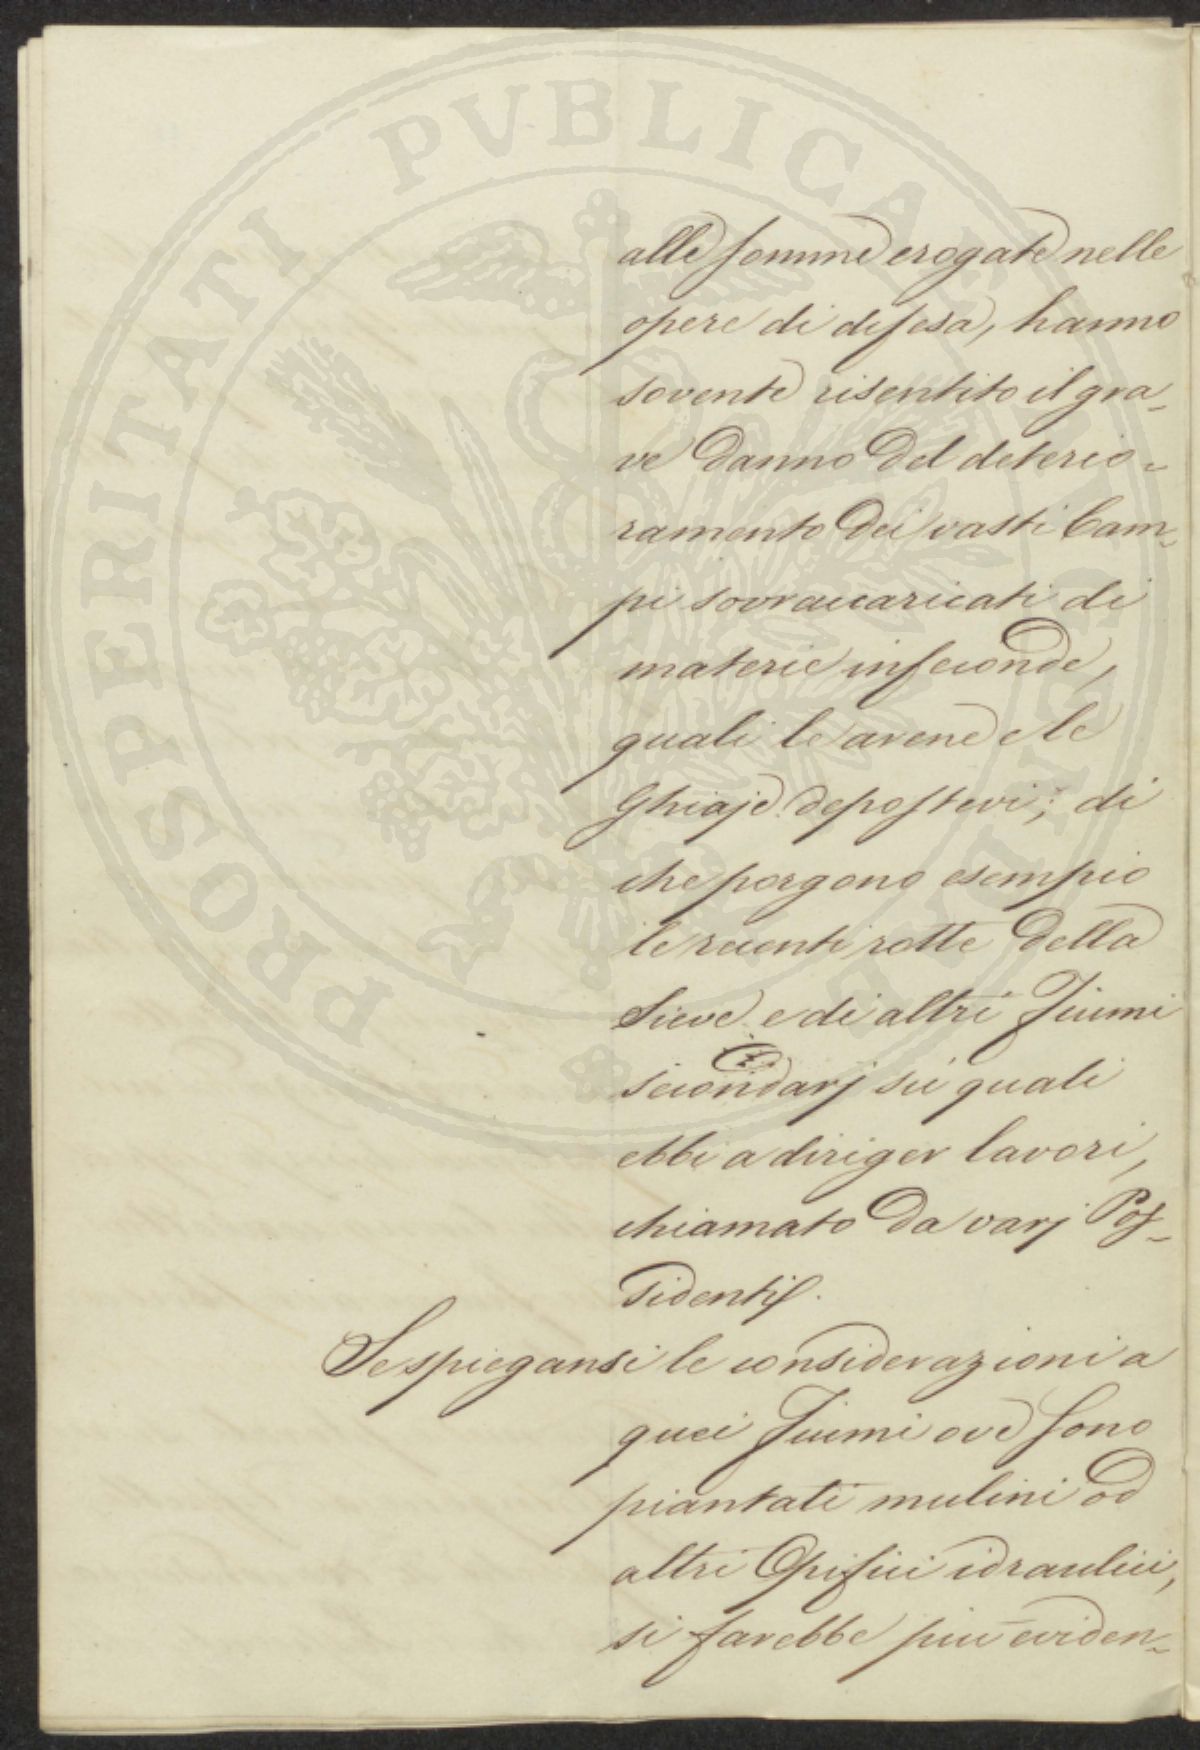 PROSPERITATI PVBLICAE
alle somme erogate nelle
opere di difesa, hanno
sovente risentito il gra-
ve danno del deterio-
ramento dei vasti Cam-
pi sovraccaricati di
materie infeconde,
quali le arene e le
Ghiaje depostevi; di
che porgono esempio
le recenti rotte della
Sieve e di altri Fiumi
secondarj sù quali
ebbi a diriger lavori,
chiamato da varj Pos-
sidenti.
Se spiegansi le considerazioni a
quei Fiumi ove sono
piantati mulini od
altri Opifici idraulici,
si farebbe più eviden-